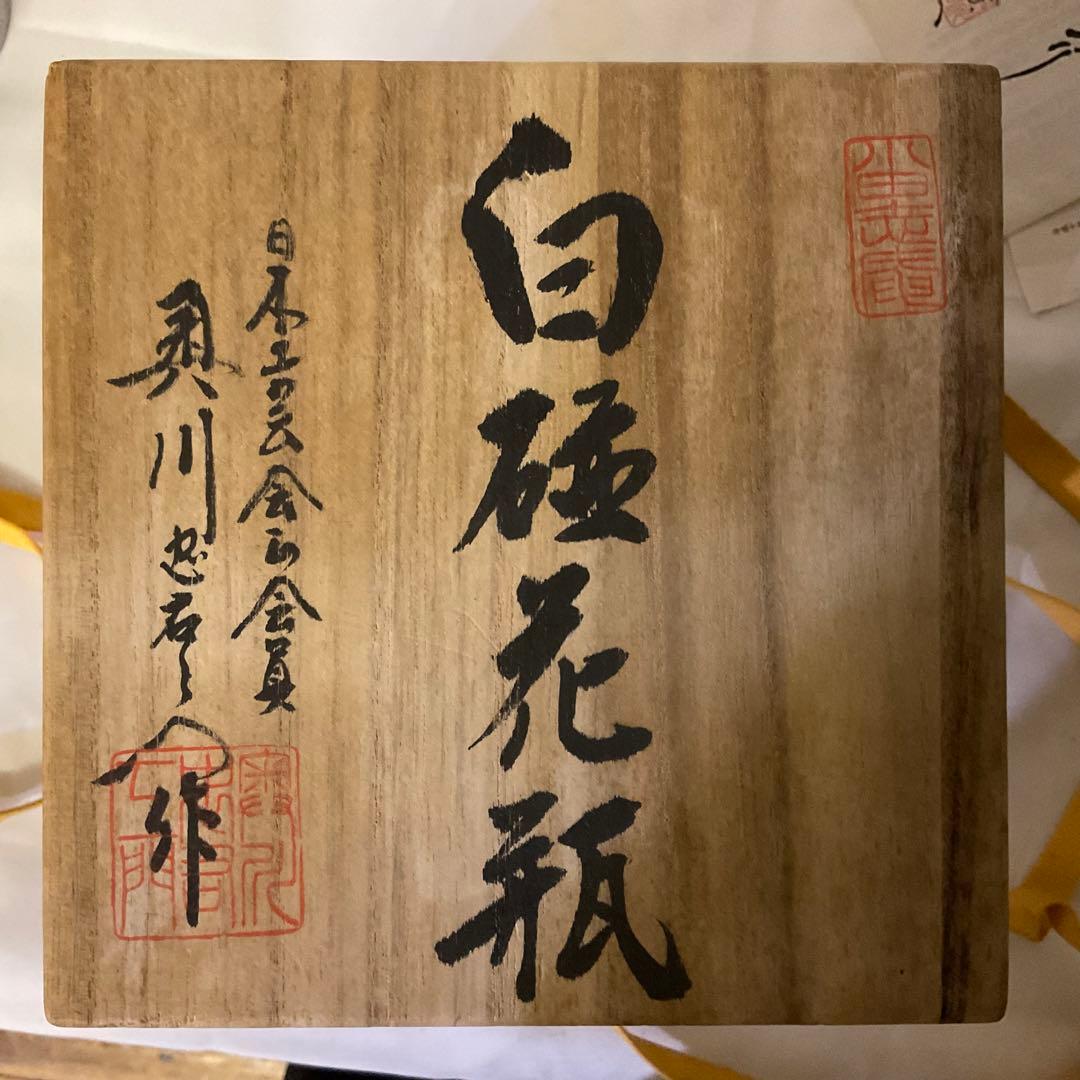 白磁花瓶
日本工芸会正会員
奥川忠右エ門作